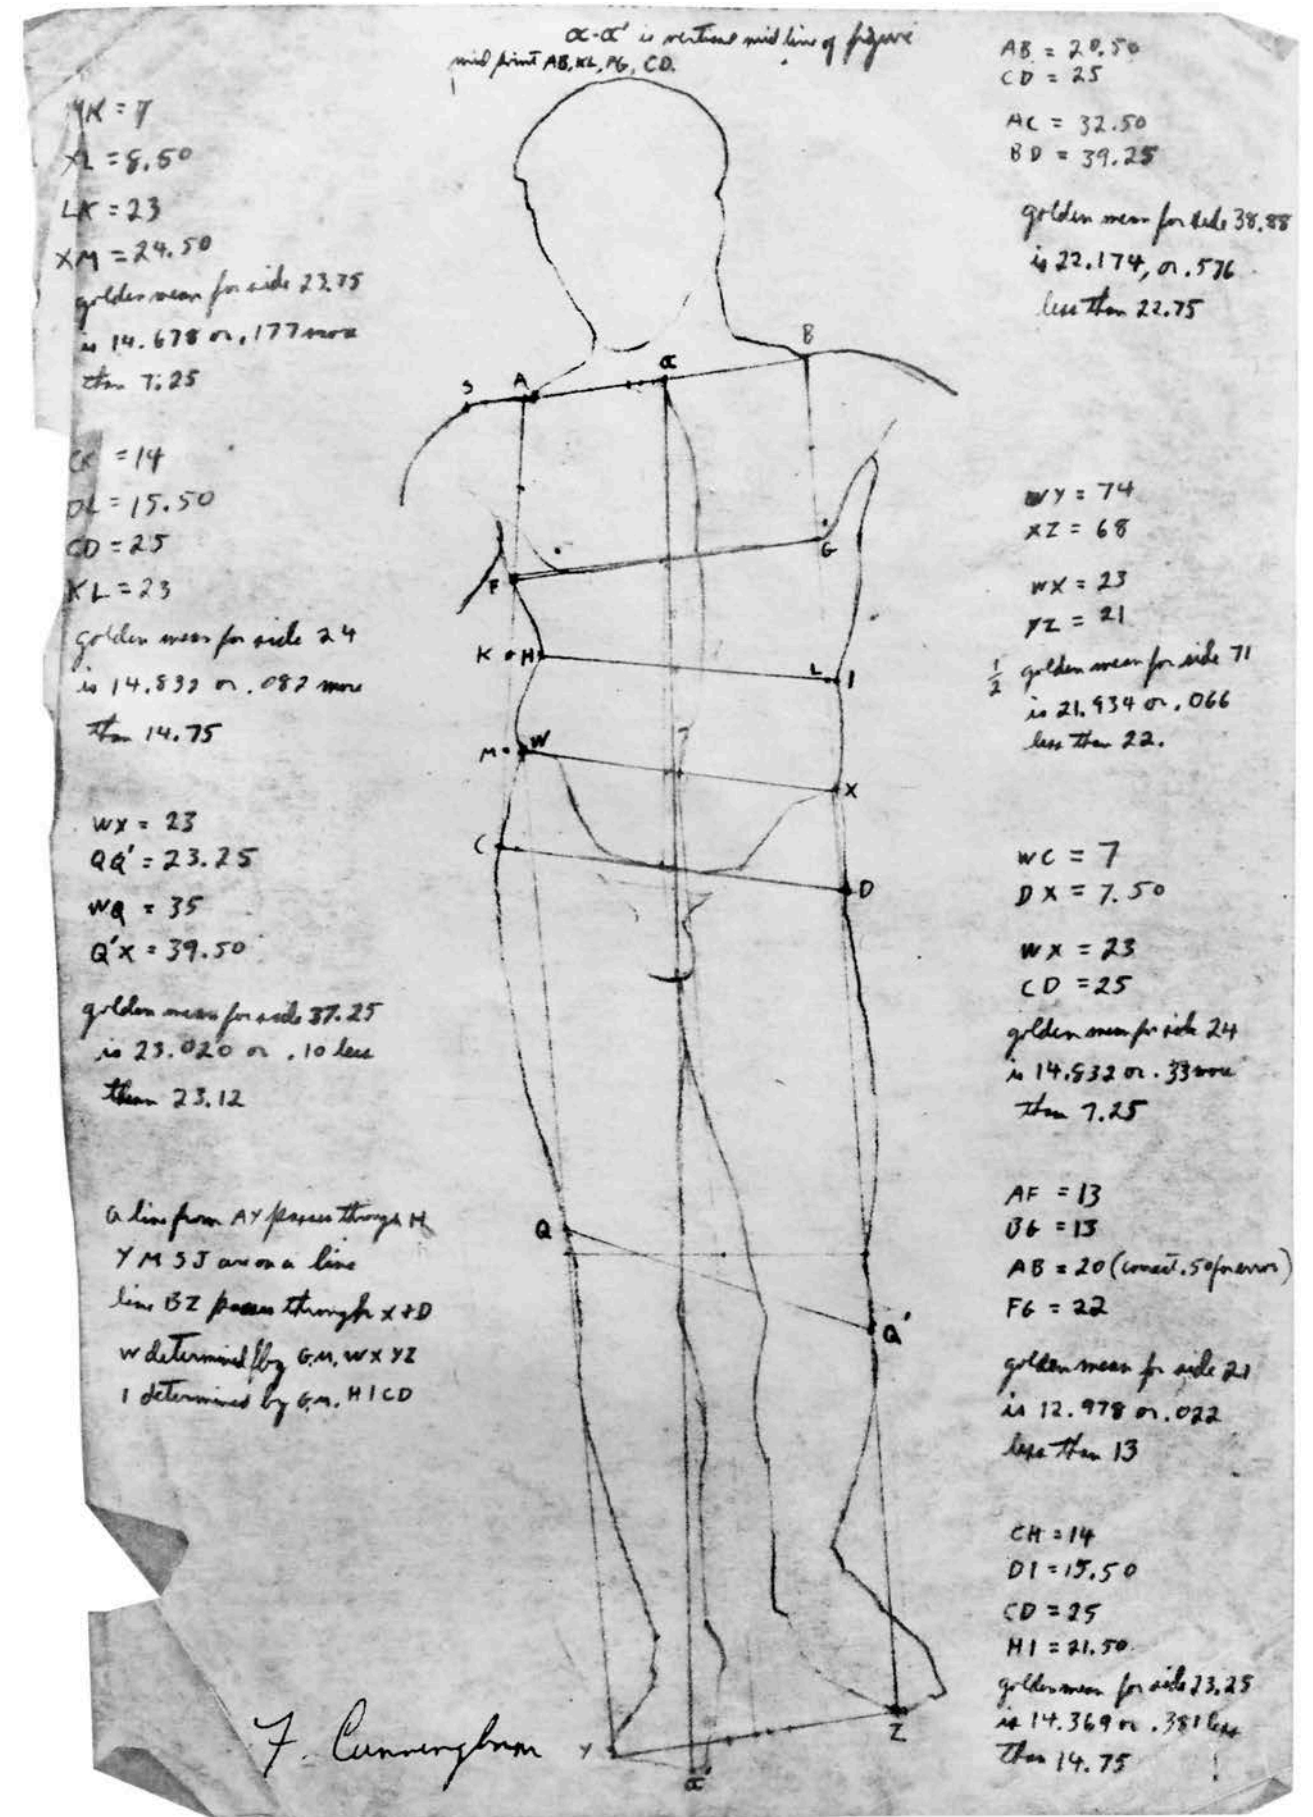 α-α' is vertical mid line of figure
mid point AB, KL, FG, CD.
XL = 8.50
LK = 23
XM = 24.50
golden mean for side 23.75
is 14.678 or .177 more
than 7.25
CK = 14
DL = 15.50
CD = 25
KL = 23
golden mean for side 24
is 14.832 or .082 more
than 14.75
WX = 23
QQ' = 23.25
WQ = 35
Q'X = 39.50
golden mean for side 37.25
is 23.020 or .10 less
than 23.12
a line from AY passes through H
Y M S J are on a line
line BZ passes through X + D
W determined by G.M. WX YZ
I determined by G.M. HICD
AB = 20.50
CD = 25
AC = 32.50
BD = 39.25
golden mean for side 38.88
is 22.174, or .576
less than 22.75
WY = 74
XZ = 68
WX = 23
YZ = 21
1/2 golden mean for side 71
is 21.934 or .066
less than 22.
WC = 7
DX = 7.50
WX = 23
CD = 25
golden mean for side 24
is 14.832 or .33 more
than 7.25
AF = 13
BG = 13
AB = 20 (correct .50 for error)
FG = 22
golden mean for side 21
is 12.978 or .022
less than 13
CH = 14
DI = 15.50
CD = 25
HI = 21.50
golden mean for side 23.25
is 14.369 or .381 less
than 14.75
S A α B
F G
K H L I
M W X
C D
Q Q'
Y α' Z
F. Cunningham